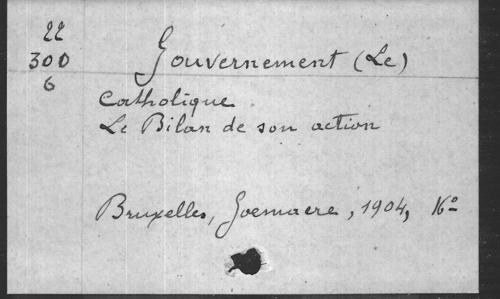 22
300
6
Gouvernement (Le)
Catholique.
Le Bilan de son action
Bruxelles, Goemaere, 1904,